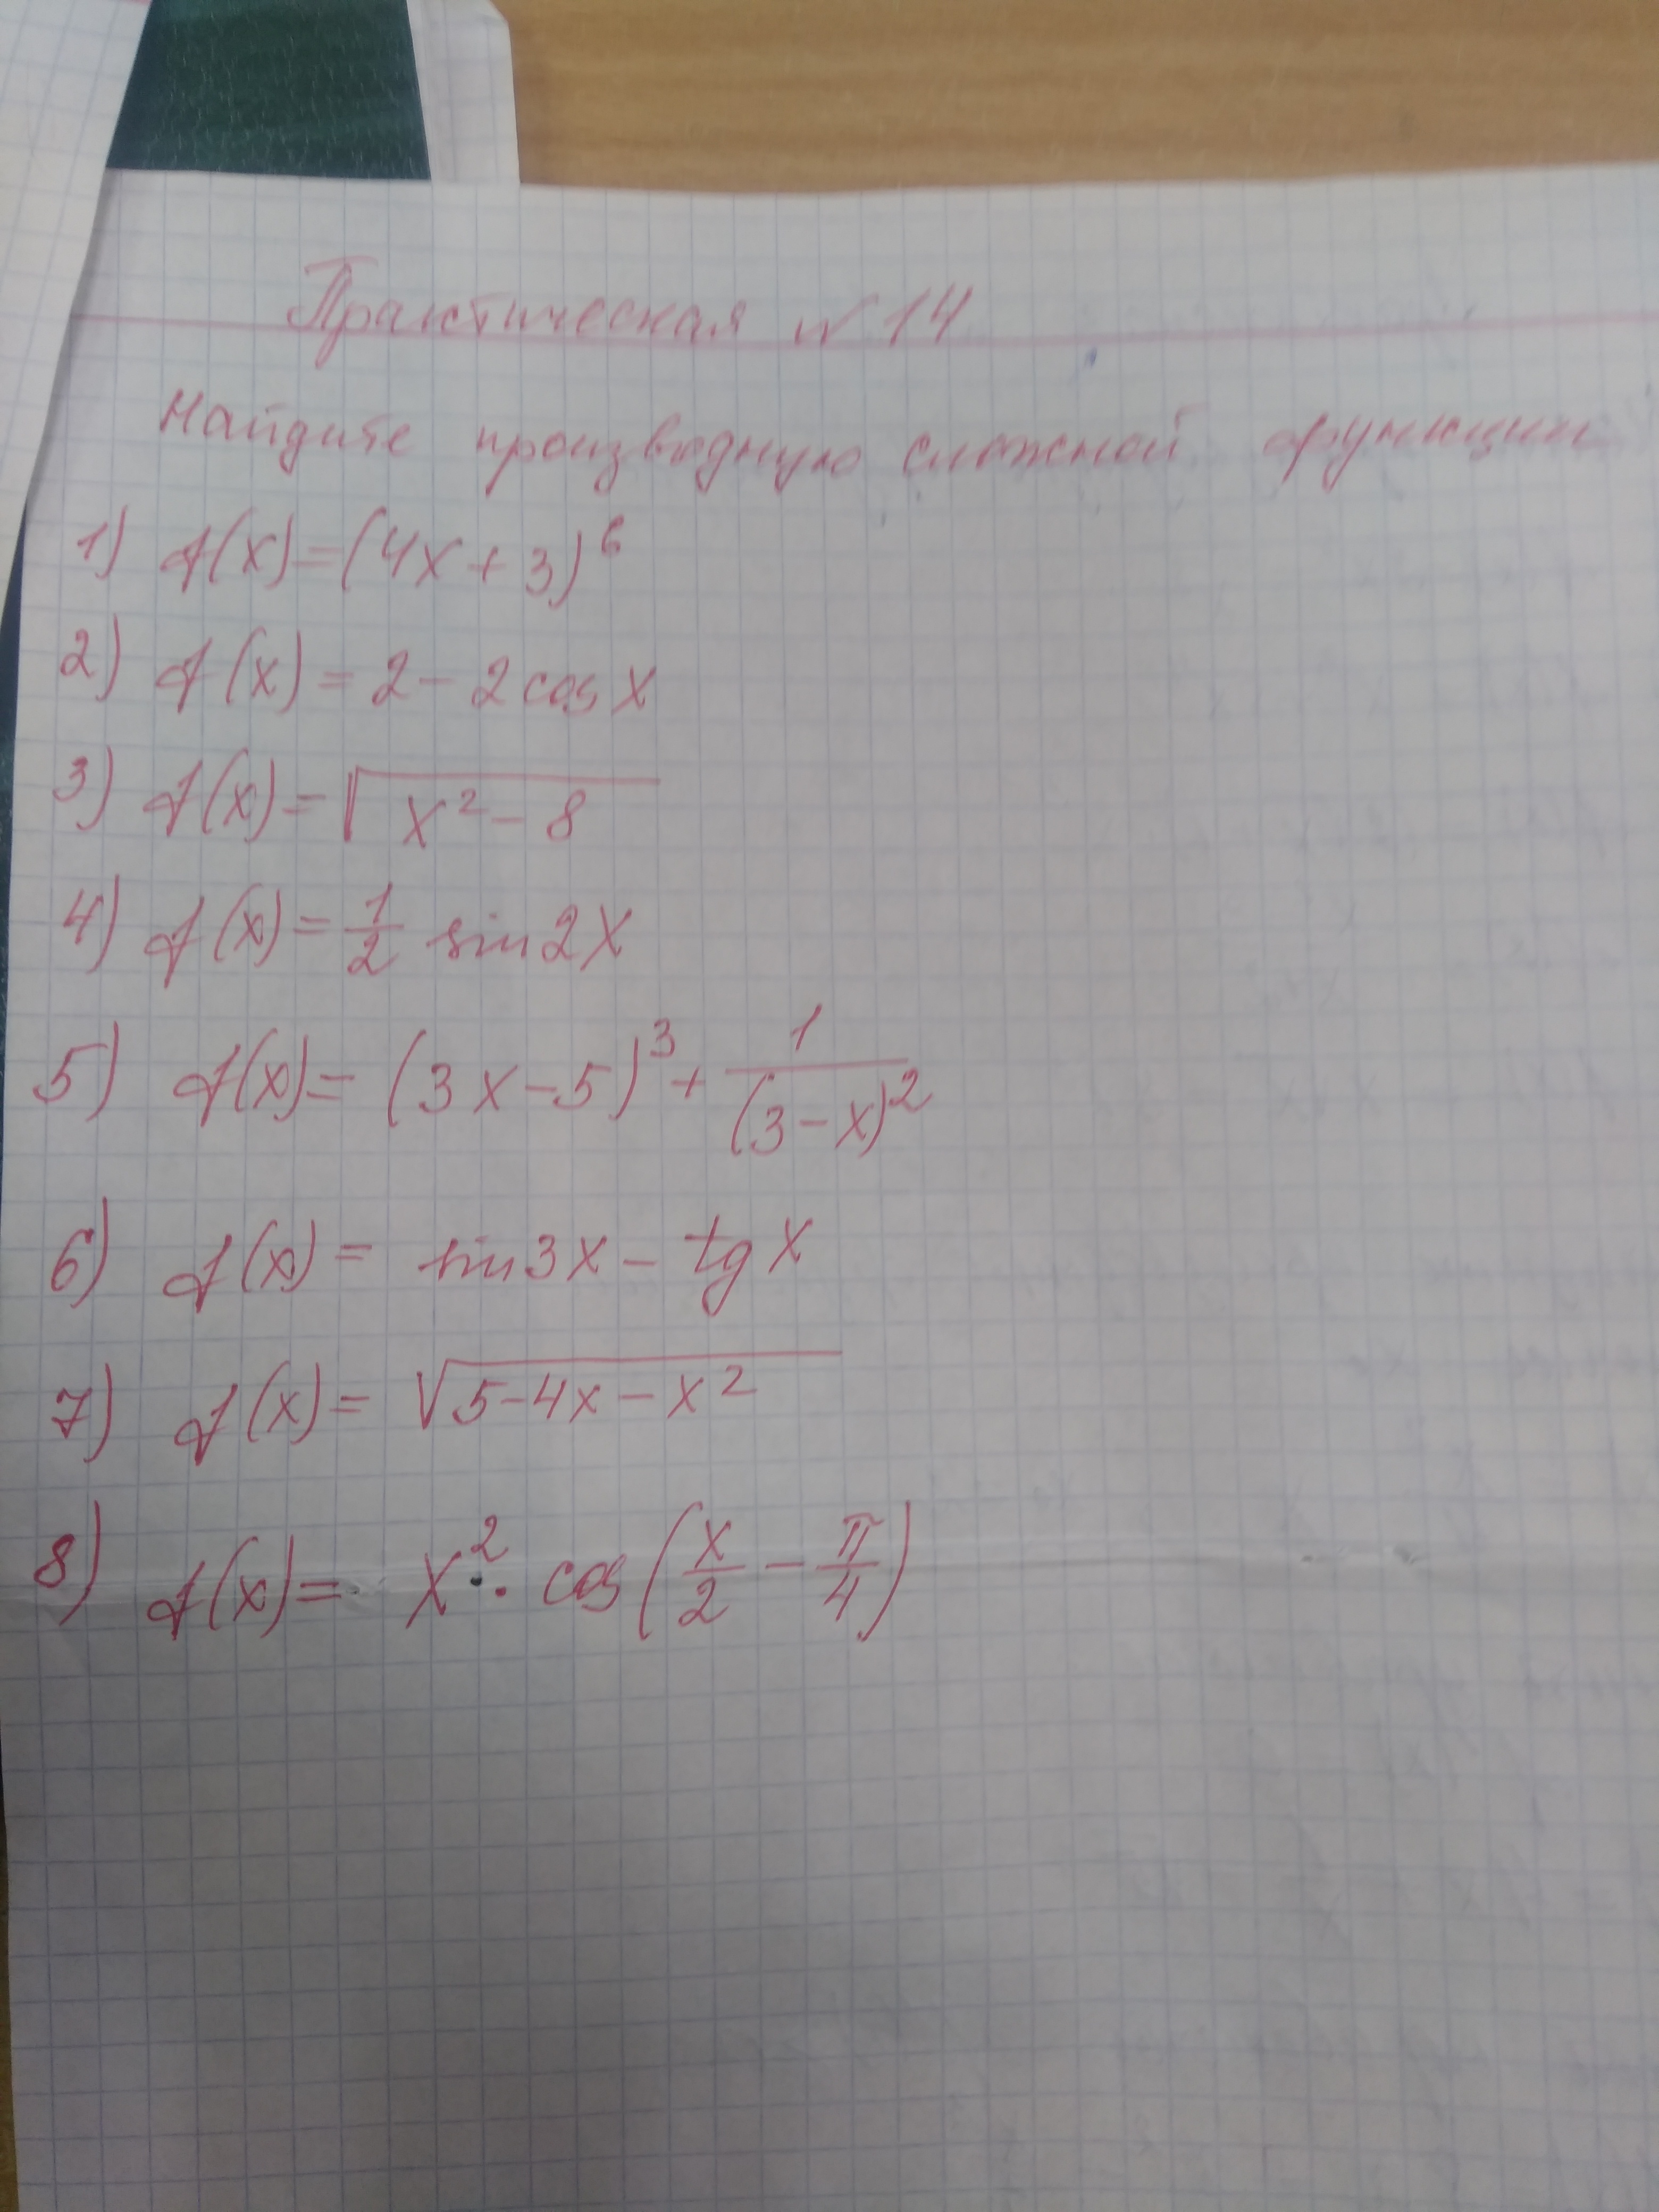 Практическая №14
Найдите производную сложной функции
1) f(x)=(4x+3)⁶
2) f(x)=2-2cosx
3) f(x)=√(x²-8)
4) f(x)=1/2 sin2x
5) f(x)=(3x-5)³+1/(3-x)²
6) f(x)= sin3x-tgx
7) f(x)= √(5-4x-x²)
8) f(x)= x²·cos(x/2-π/4)